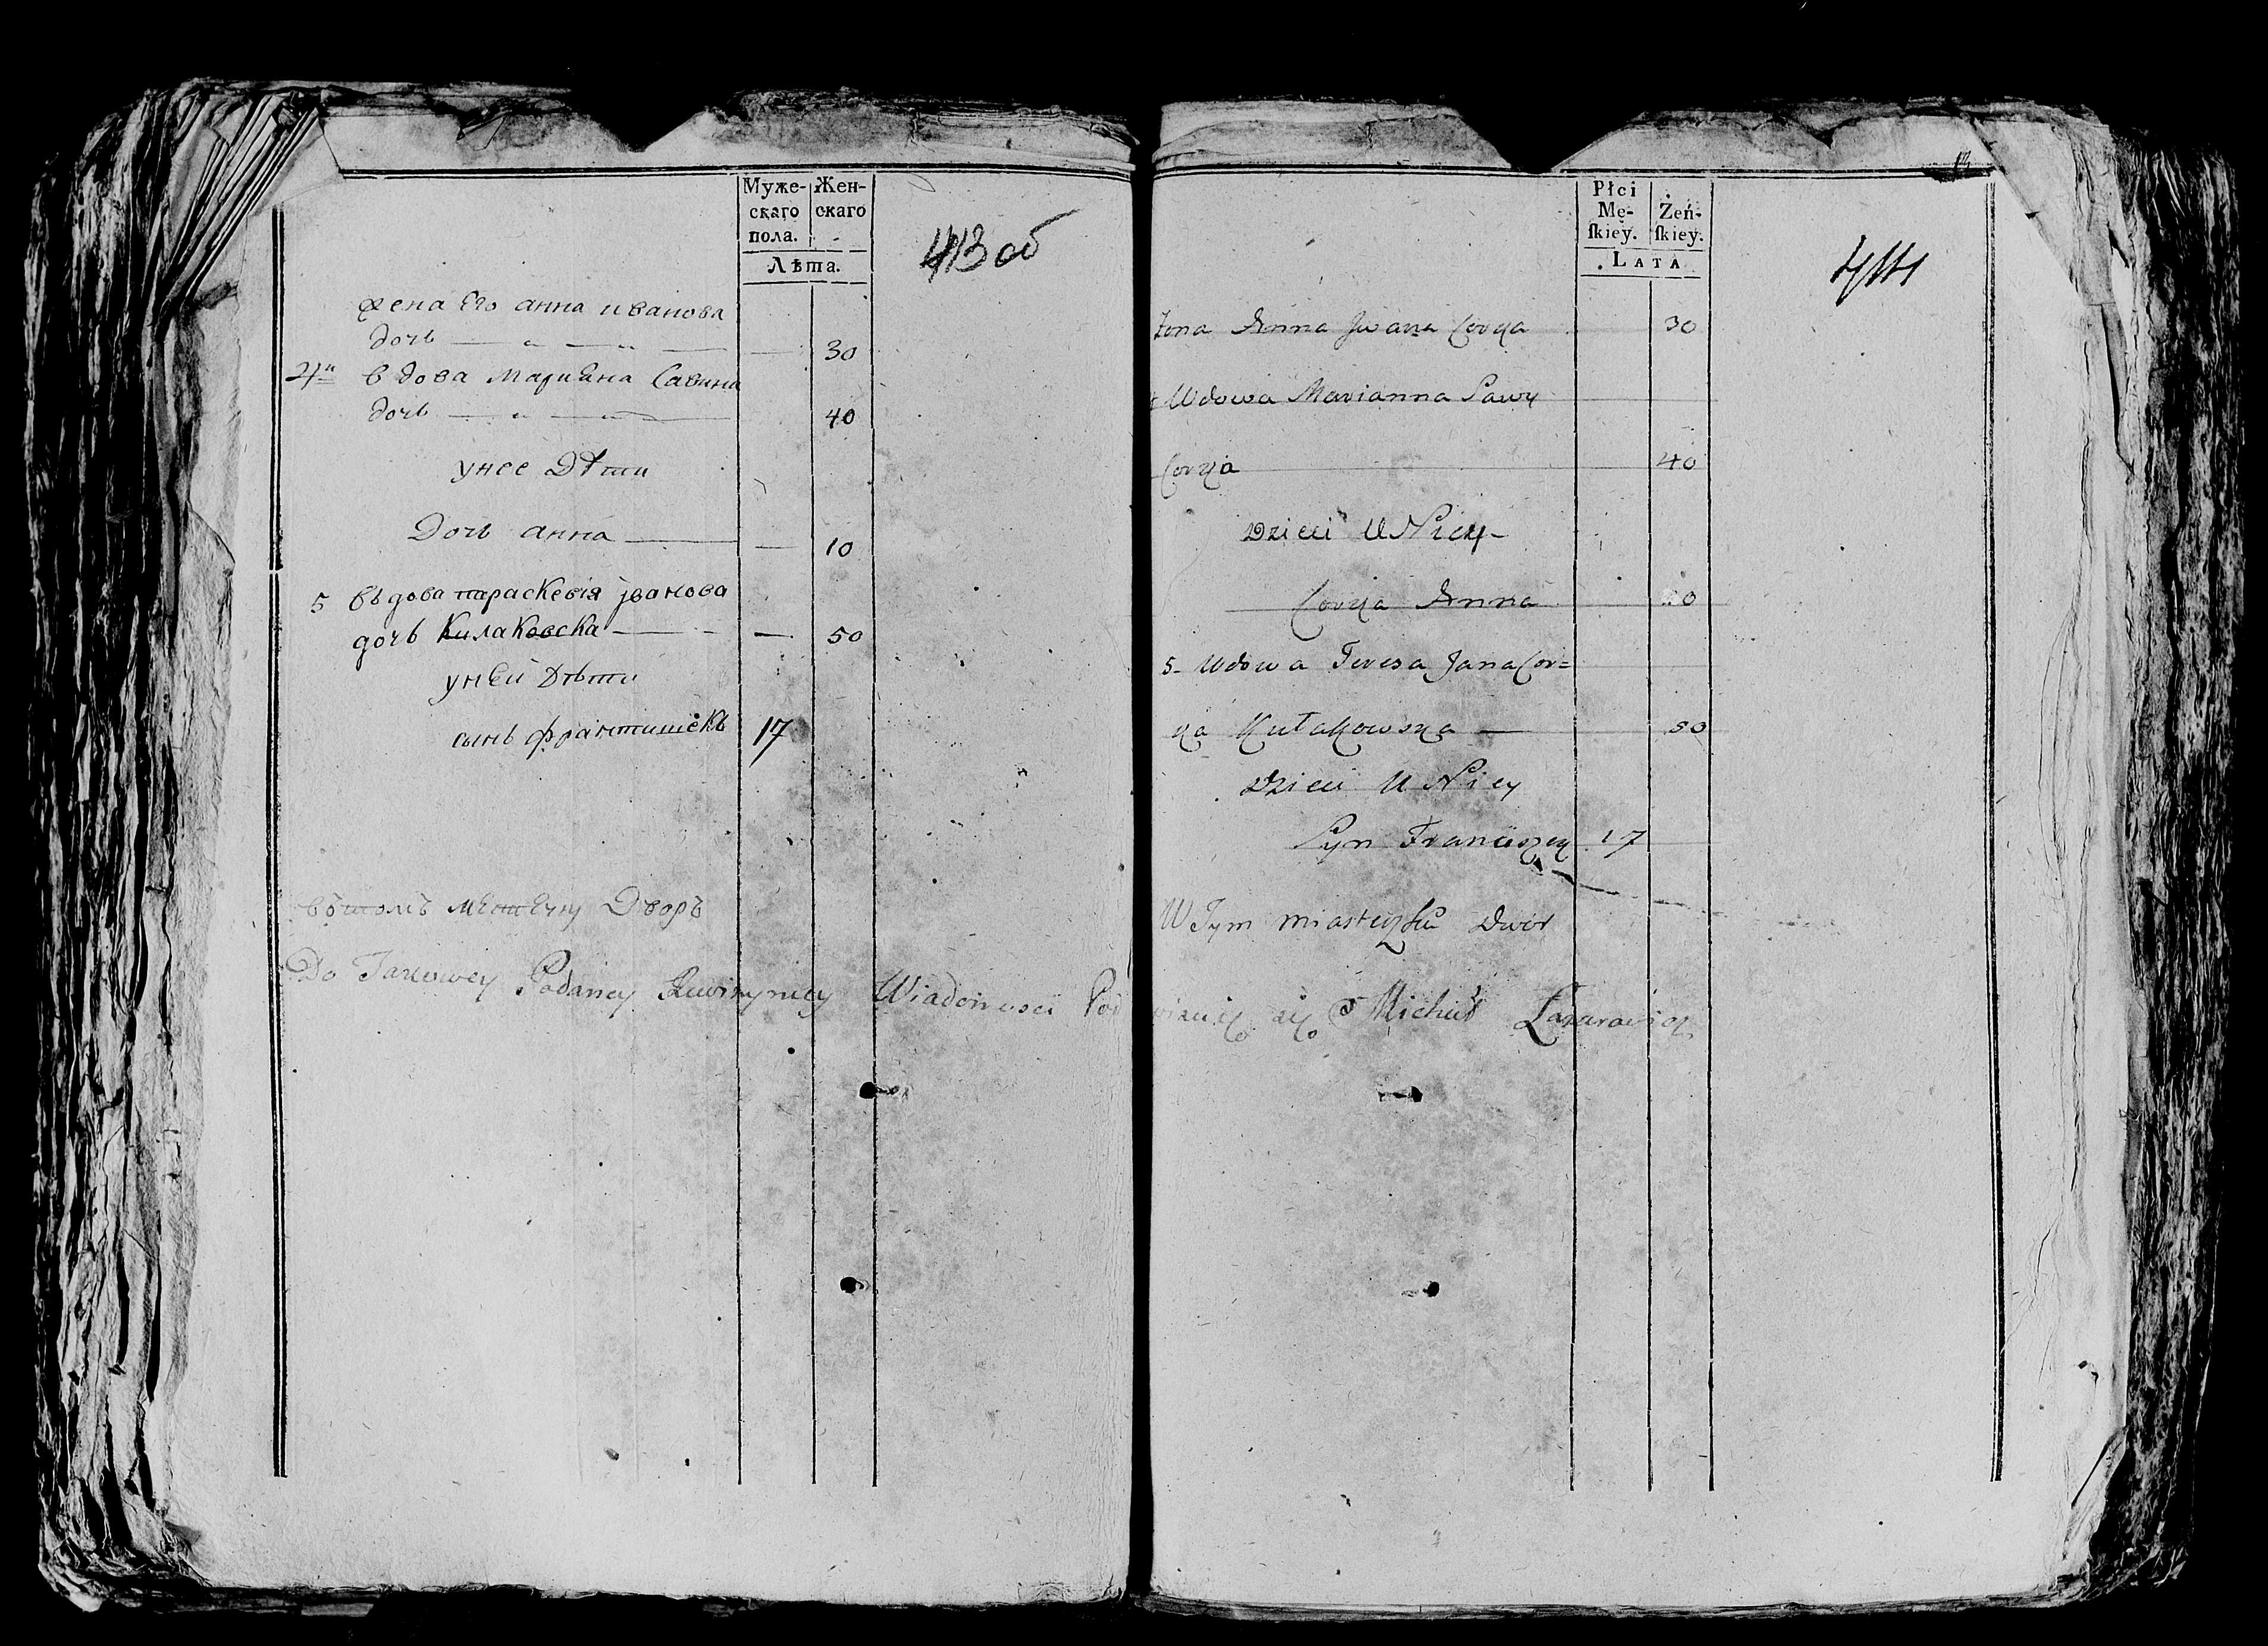 Муже-
скаго
пола.
Жен-
скаго
Лѣта.
413 об
жена Его анна иванова
дочь — „ — „ — — 30
4й вдова Мариана Савина
дочь — „ — „ — 40
унее Дѣти
Дочь анна — — 10
5 вьдова параскевія јванова
дочь Килаковска — — — 50
уней Дѣти
сынъ франтишекъ 17
вътомъ местечку Дворъ
Do Takowey Podaney Rewizyiney Wiadomosci Pod
Płci
Mę-
ſkiey.
Żeń-
ſkiey.
Lata
414
Żona Anna Jwana Corka 30
Wdowa Marianna Sawy
Corka 40
Dzieci U Niey
Corka Anna
5- Wdowa Teresa Jana Cor=
ka Kułakowska — 50
Dzieci U Niey
Syn Franciszek 17
W Tym miasteczku Dwór
Michał Łazarowicz